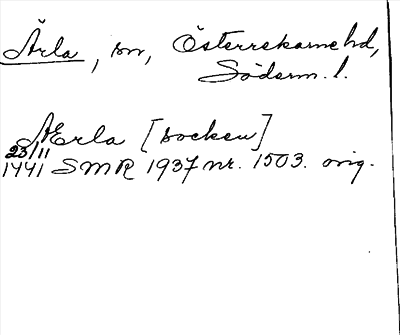 Ärla, sn, Österrekarne hd,
Söderm. l.
Ærla [socken]
23/11
1441 SMR 1937 nr. 1503. orig.